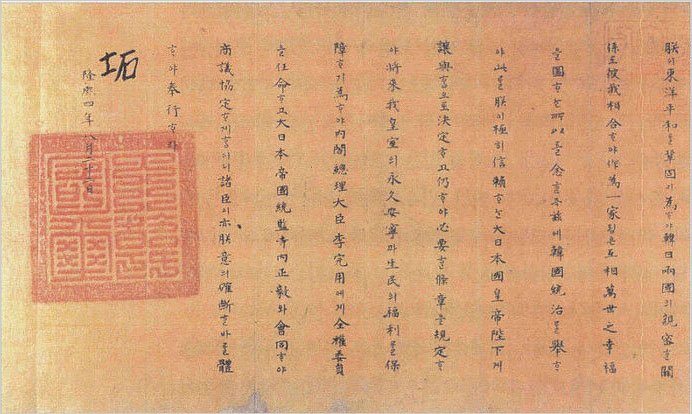 朕이東洋平和를鞏固히爲ᄒᆞ야韓日兩國의親密ᄒᆞᆫ關
係로彼我相合ᄒᆞ야作爲一家ᄒᆞᆷ은互相萬世之幸福
을圖ᄒᆞᄂᆞᆫ所以를念ᄒᆞᆫ즉玆에韓國統治를擧ᄒᆞ
야此를朕이極히信賴ᄒᆞᄂᆞᆫ大日本國皇帝陛下게
讓與ᄒᆞ기로決定ᄒᆞ고仍ᄒᆞ야必要ᄒᆞᆫ條章을規定ᄒᆞ
야將來我皇室의永久安寧과生民의福利를保
障ᄒᆞ기爲ᄒᆞ야內閣總理大臣李完用에게全權委員
을任命ᄒᆞ고大日本帝國統監寺內正毅와會同ᄒᆞ야
商議協定ᄒᆞ게ᄒᆞ이니諸臣이亦朕意의確斷ᄒᆞᆫ바를體
ᄒᆞ야奉行ᄒᆞ라
坧
隆熙四年八月二十二日